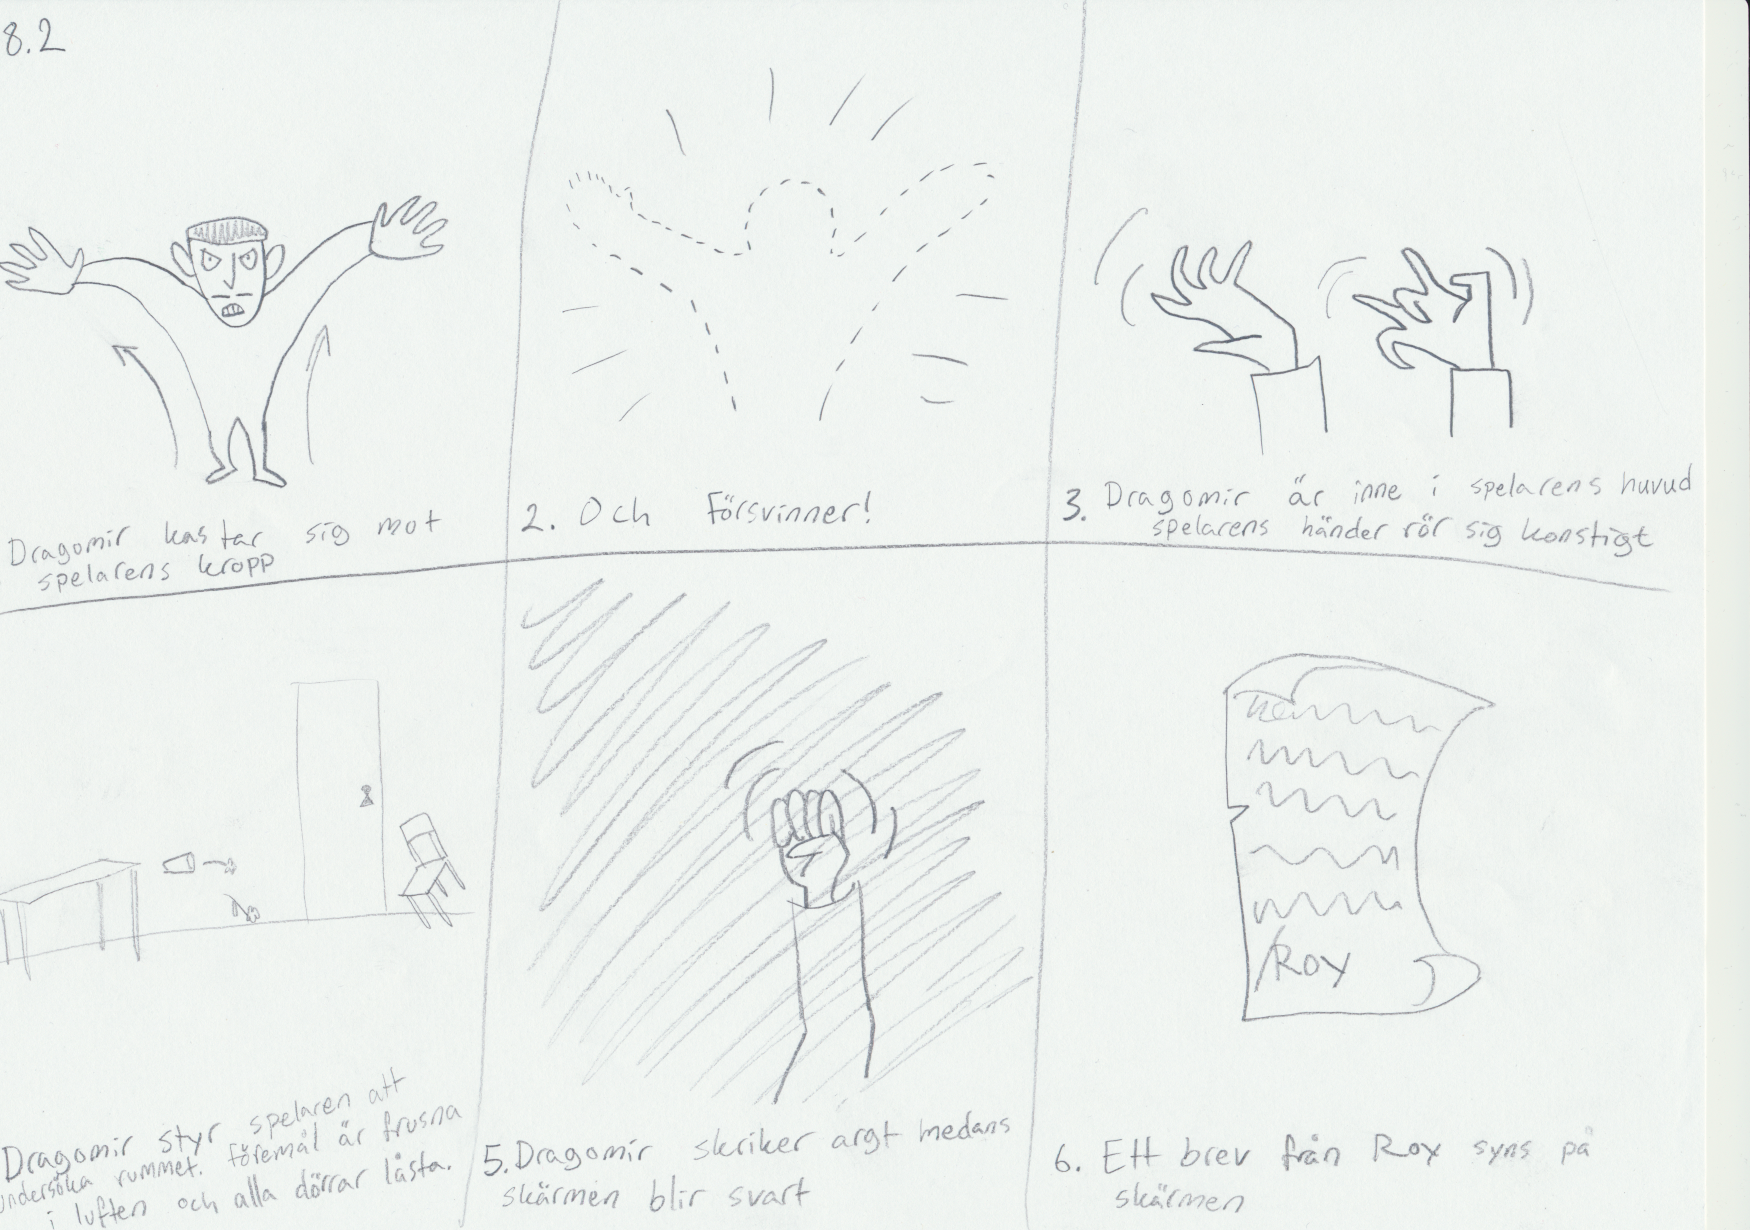 8.2
Dragomir kastar sig mot
spelarens kropp
2. Och Försvinner!
3. Dragomir är inne i spelarens huvud
spelarens händer rör sig konstigt
Dragomir styr spelaren att
undersöka rummet. Föremål är frusna
i luften och alla dörrar låsta.
5. Dragomir skriker argt medans
skärmen blir svart
Roy
6. Ett brev från Roy syns på
skärmen